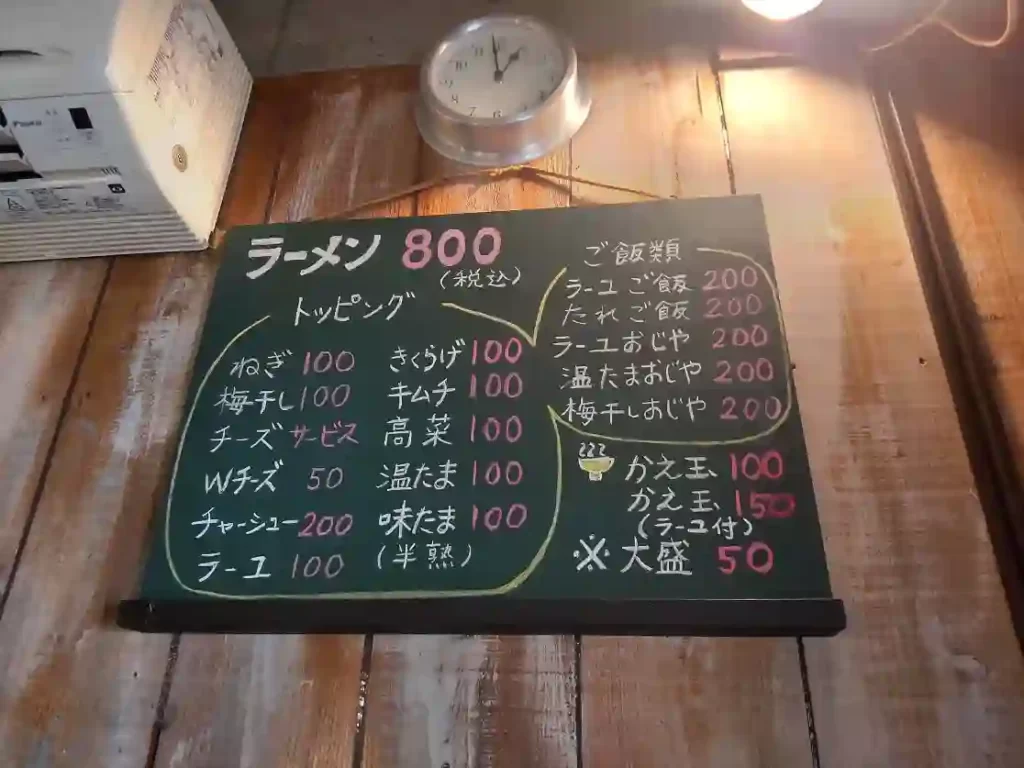 ラーメン 800
(税込)
トッピング
ねぎ 100
梅干し 100
チーズ サービス
Wチーズ 50
チャーシュー 200
ラーユ 100
きくらげ 100
キムチ 100
高菜 100
温たま 100
味たま 100
(半熟)
ご飯類
ラーユご飯 200
たれご飯 200
ラーユおじや 200
温たまおじや 200
梅干しおじや 200
かえ玉 100
かえ玉 150
(ラーユ付)
※大盛 50